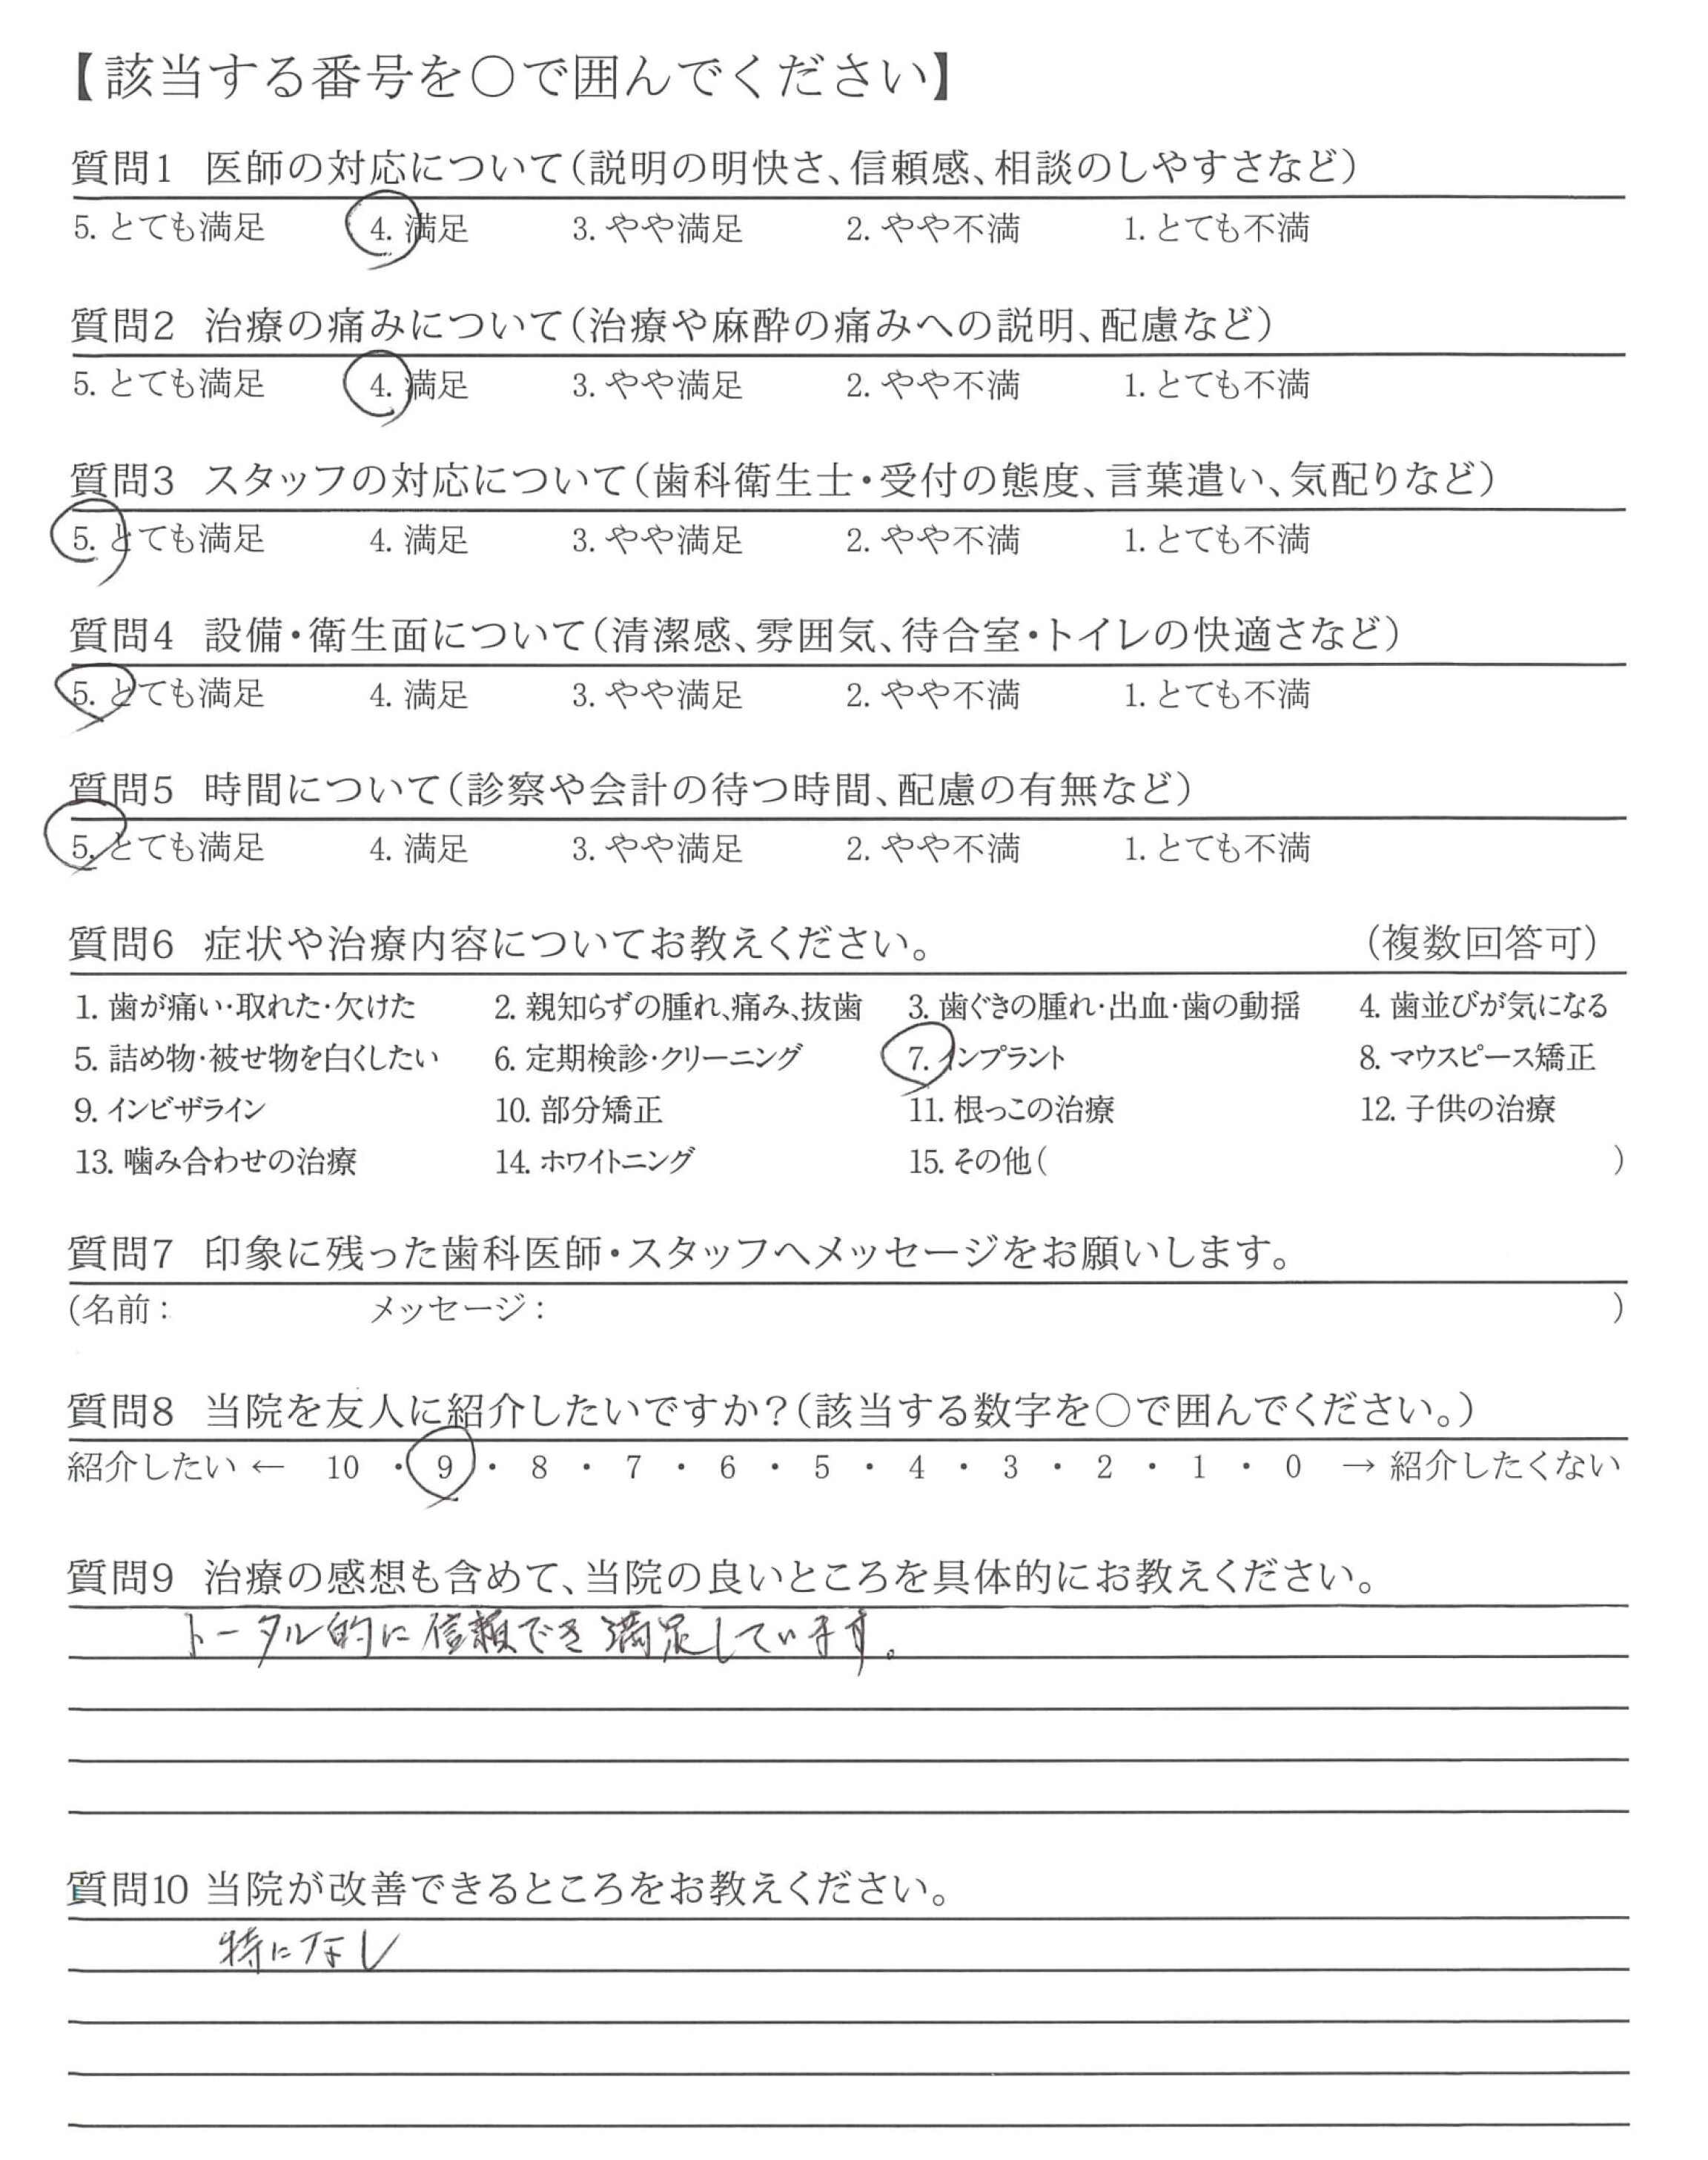 【該当する番号を○で囲んでください】
質問1 医師の対応について(説明の明快さ、信頼感、相談のしやすさなど)
5. とても満足 4. 満足 3. やや満足 2. やや不満 1. とても不満
質問2 治療の痛みについて(治療や麻酔の痛みへの説明、配慮など)
5. とても満足 4. 満足 3. やや満足 2. やや不満 1. とても不満
質問3 スタッフの対応について(歯科衛生士・受付の態度、言葉遣い、気配りなど)
5. とても満足 4. 満足 3. やや満足 2. やや不満 1. とても不満
質問4 設備・衛生面について(清潔感、雰囲気、待合室・トイレの快適さなど)
5. とても満足 4. 満足 3. やや満足 2. やや不満 1. とても不満
質問5 時間について(診察や会計の待つ時間、配慮の有無など)
5. とても満足 4. 満足 3. やや満足 2. やや不満 1. とても不満
質問6 症状や治療内容についてお教えください。 (複数回答可)
1. 歯が痛い・取れた・欠けた 2. 親知らずの腫れ、痛み、抜歯 3. 歯ぐきの腫れ・出血・歯の動揺 4. 歯並びが気になる
5. 詰め物・被せ物を白くしたい 6. 定期検診・クリーニング 7. インプラント 8. マウスピース矯正
9. インビザライン 10. 部分矯正 11. 根っこの治療 12. 子供の治療
13. 噛み合わせの治療 14. ホワイトニング 15. その他( )
質問7 印象に残った歯科医師・スタッフへメッセージをお願いします。
(名前: メッセージ: )
質問8 当院を友人に紹介したいですか?(該当する数字を○で囲んでください。)
紹介したい ← 10 ・ 9 ・ 8 ・ 7 ・ 6 ・ 5 ・ 4 ・ 3 ・ 2 ・ 1 ・ 0 → 紹介したくない
質問9 治療の感想も含めて、当院の良いところを具体的にお教えください。
トータル的に信頼でき満足しています。
質問10 当院が改善できるところをお教えください。
特になし